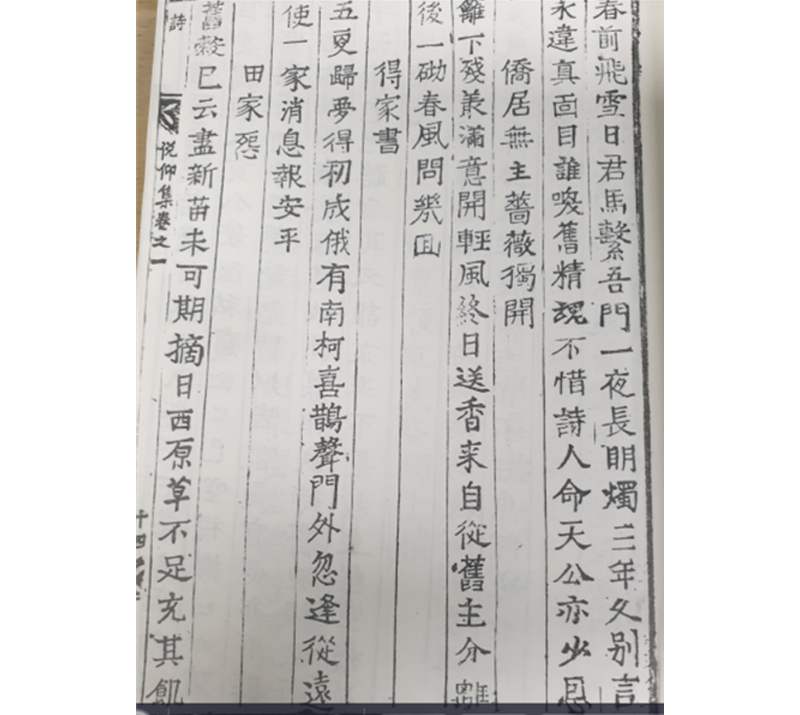 春前飛雪日君馬繫吾門一夜長明燭三年久别言
永違真面目誰喚舊精魂不惜詩人命天公亦少恩
僑居無主薔薇獨開
籬下殘叢滿意開輕風終日送香来自從舊主分離
後一砌春風問幾回
得家書
五更歸夢得初成俄有南柯喜鵲聲門外忽逢從遠
使一家消息報安平
田家怨
舊穀已云盡新苗未可期摘日西原草不足充其飢
詩
悅仰集卷之一
十四